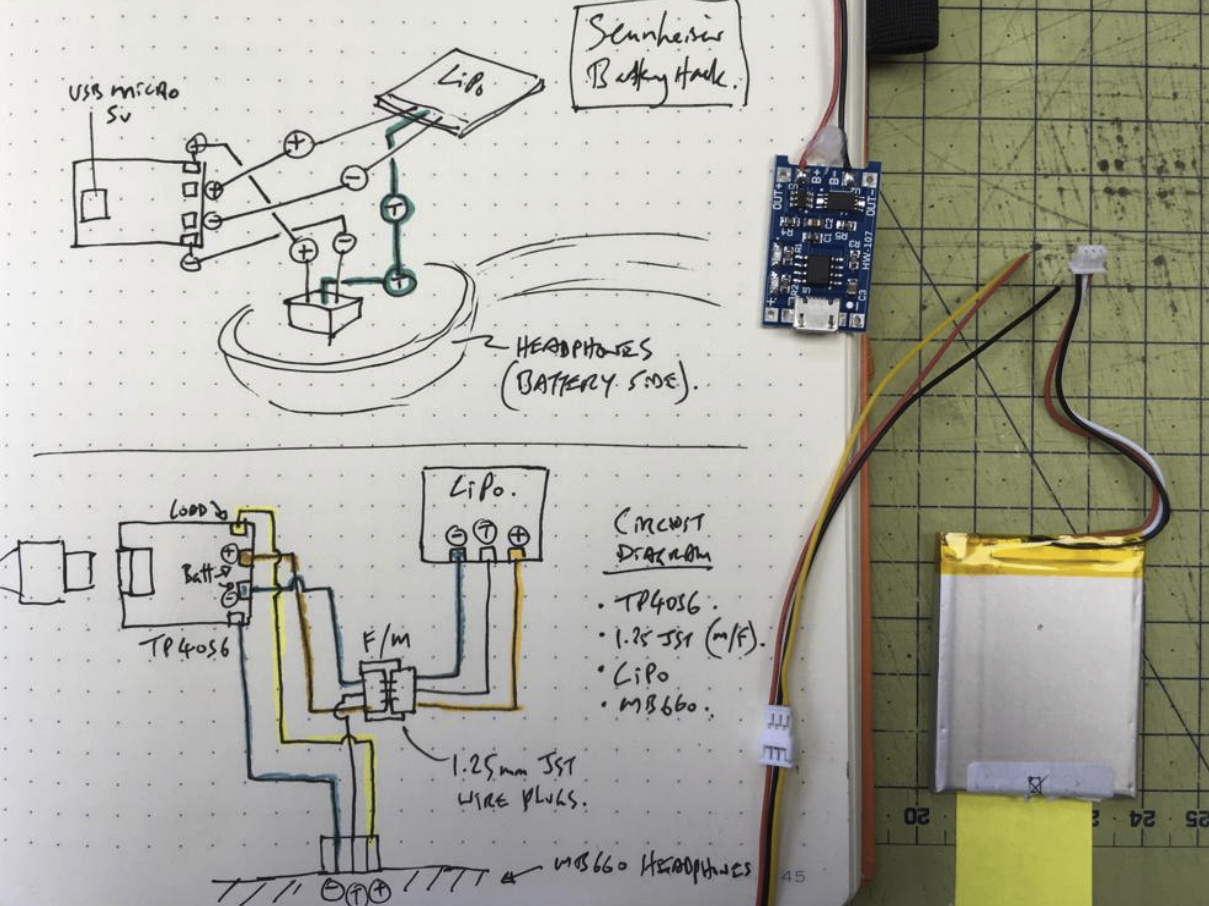 Sennheiser
Battery Hack.
USB MICRO
5V
LiPo
+
-
+
+
-
-
+
-
T
T
HEADPHONES
(BATTERY SIDE).
LOAD
+
Batt
-
TP4056
F/M
LiPo.
- T +
CIRCUIT
DIAGRAM
• TP4056.
• 1.25 JST (M/F).
• LiPo
• MB660.
1.25mm JST
WIRE PLUGS.
MB660 HEADPHONES
- T +
45
OUT+
B+
B-
OUT-
R1
C1
C2
R2
C3
HW-107
+
-
20
24
25